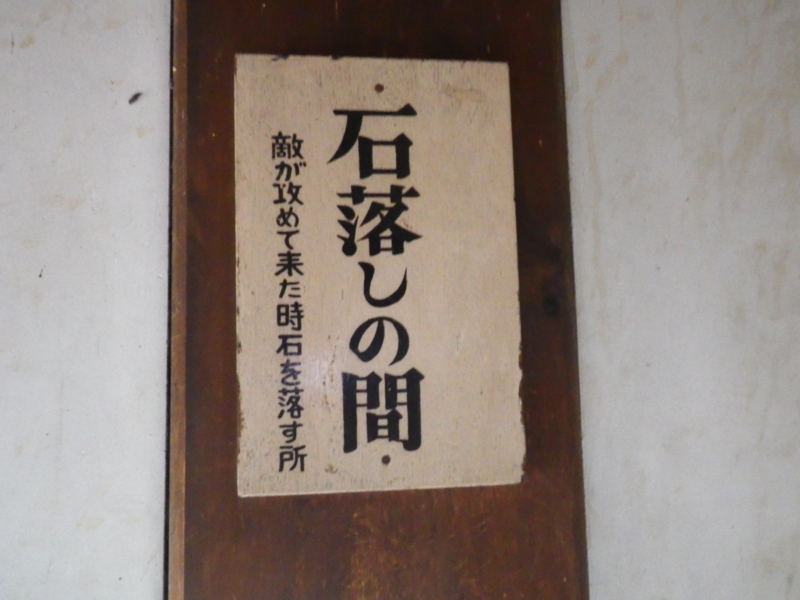 石落しの間
敵が攻めて来た時石を落す所